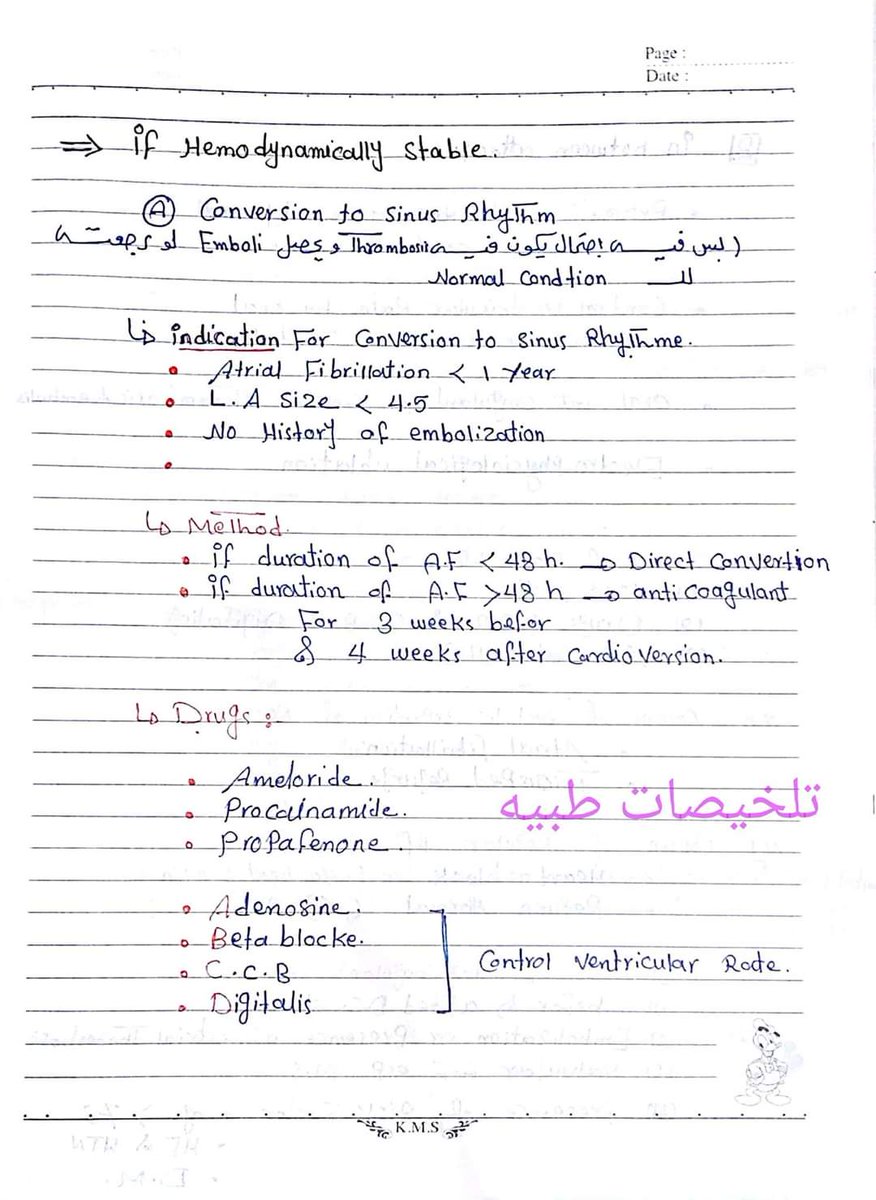 Page :
Date :
⇒ if Hemodynamically stable.
Ⓐ Conversion to sinus Rhythm
(بس فيه احتمال يكون فيه Thrombosis و يحصل Emboli لو رجعته
للـ Normal Condtion
↳ indication For Conversion to sinus Rhythme.
• Atrial Fibrillation < 1 year
• L.A size < 4.5
• No History of embolization
•
↳ Method.
• if duration of A.F < 48 h. → Direct Convertion
• if duration of A.F > 48 h → anti coagulant
For 3 weeks befor
& 4 weeks after Cardio Version.
↳ Drugs :
• Ameloride.
• Procainamide.
تلخيصات طبيه
• Propafenone.
• Adenosine.
• Beta blocke.
• C.C.B
• Digitalis
Control Ventricular Rate.
K.M.S